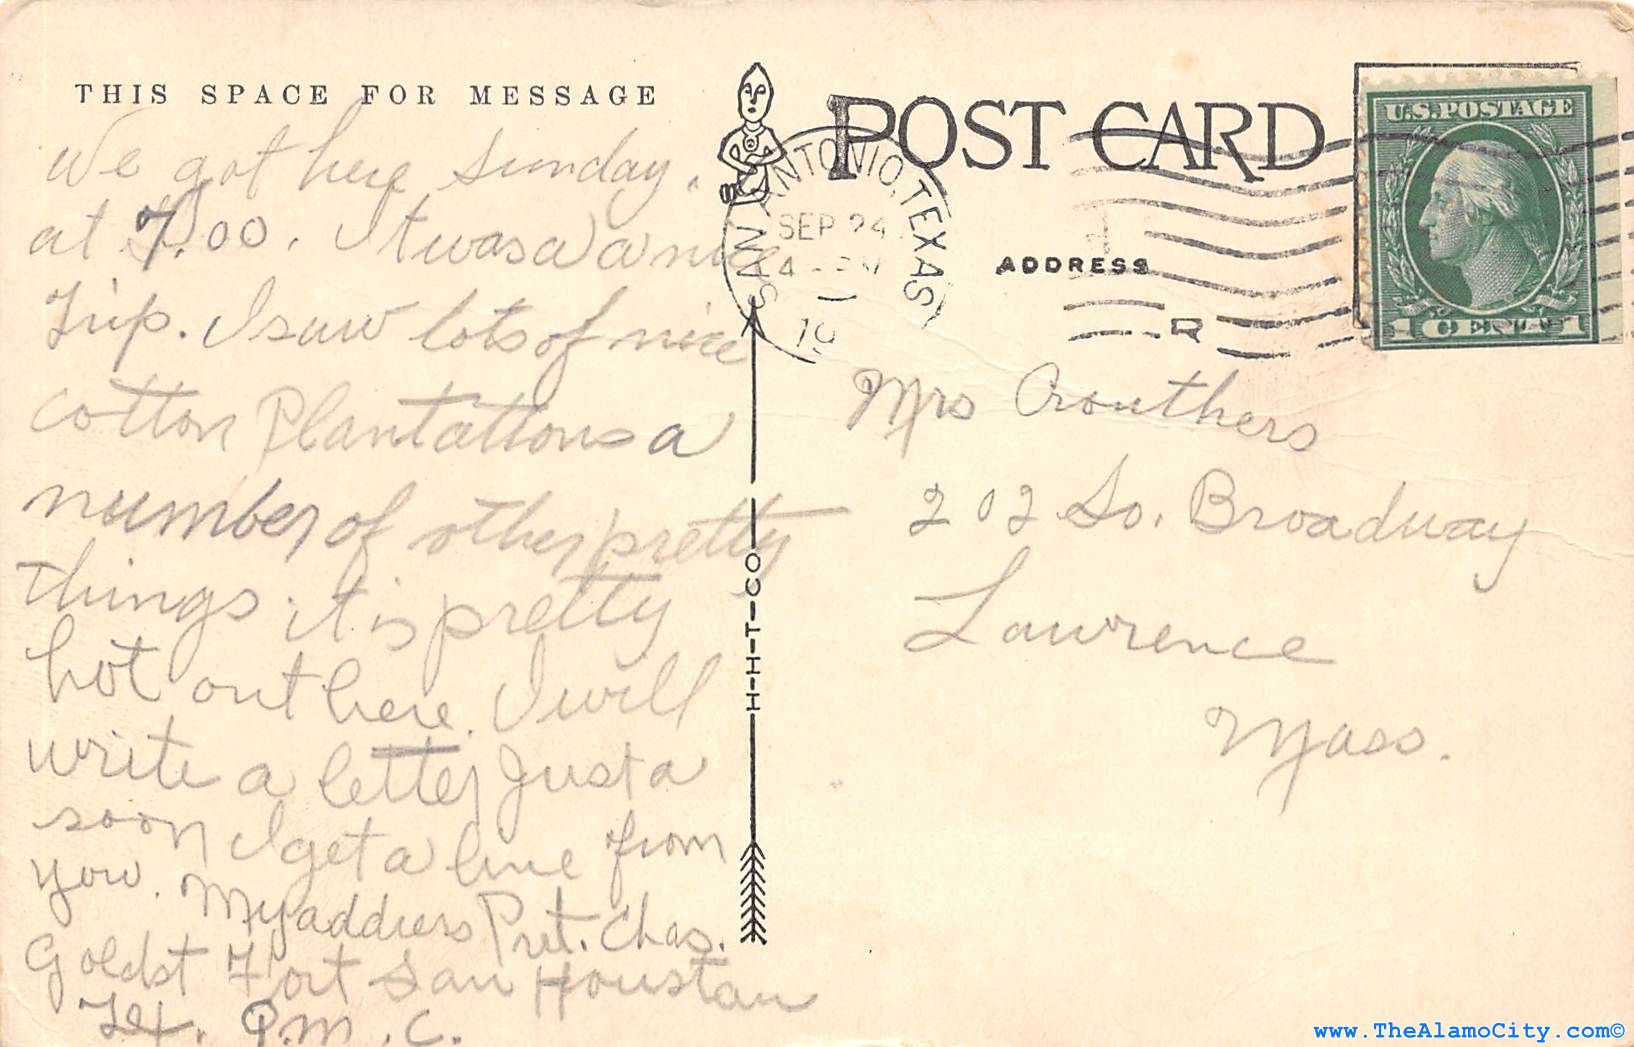 THIS SPACE FOR MESSAGE
We got here Sunday.
at 7.00. It was a a nice
Trip. I saw lots of nice
cotton Plantattons a
number of other pretty
things. it is pretty
hot out here. I will
write a letter Just a
soon I get a line from
you. My address Pvt. Chas.
Goldst Fort San Houstan
Tex. Q.M.C.
POST CARD
SAN ANTONIO, TEXAS
SEP 24
4 - PM
19
ADDRESS
U.S. POSTAGE
1 CENT 1
Mrs Crouthers
202 So. Broadway
Lawrence
Mass.
H-H-T-CO
www.TheAlamoCity.com©